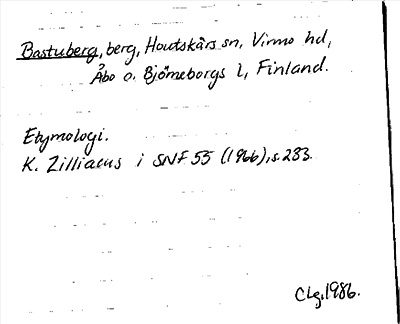 Bastuberg, berg, Houtskärs sn, Virmo hd,
Åbo o. Björneborgs l, Finland.
Etymologi.
K. Zilliacus i SNF 55 (1966), s. 283.
CLg, 1986.